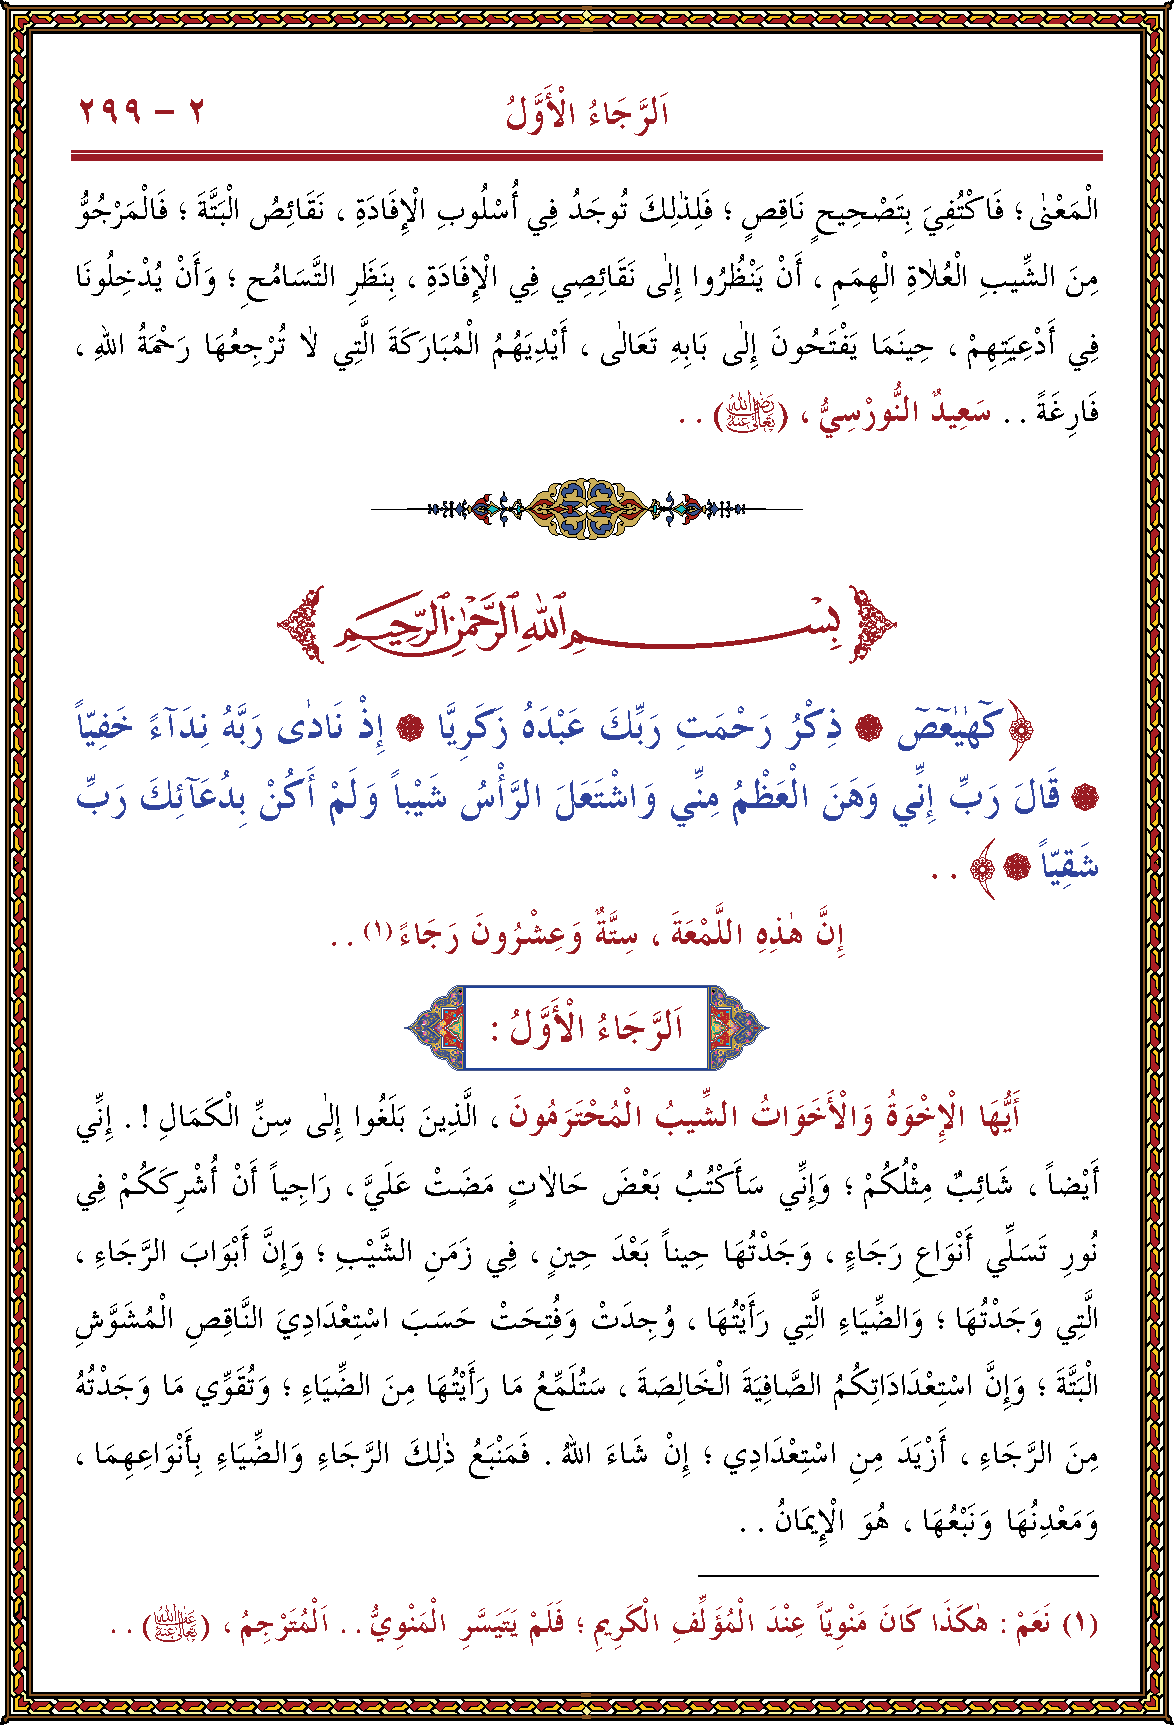 اَلرَّجَاءُ الْأَوَّلُ
٢ – ٢٩٩
الْمَعْنٰى ؛ فَاكْتُفِيَ بِتَصْحِيحٍ نَاقِصٍ ؛ فَلِذٰلِكَ تُوجَدُ فِي أُسْلُوبِ الْإِفَادَةِ ، نَقَائِصُ الْبَتَّةَ ؛ فَالْمَرْجُوُّ
مِنَ الشِّيبِ الْعُلَاةِ الْهِمَمِ ، أَنْ يَنْظُرُوا إِلٰى نَقَائِصِي فِي الْإِفَادَةِ ، بِنَظَرِ التَّسَامُحِ ؛ وَأَنْ يُدْخِلُونَا
فِي أَدْعِيَتِهِمْ ، حِينَمَا يَفْتَحُونَ إِلٰى بَابِهِ تَعَالٰى ، أَيْدِيَهُمُ الْمُبَارَكَةَ الَّتِي لَا تُرْجِعُهَا رَحْمَةُ اللهِ ،
فَارِغَةً . . سَعِيدٌ النُّورْسِيُّ ، (رَضِيَ اللهُ تَعَالٰى عَنْهُ) . .
بِسْمِ اللهِ الرَّحْمٰنِ الرَّحِيمِ
﴿كٓهٰيٰعٓصٓ ۞ ذِكْرُ رَحْمَتِ رَبِّكَ عَبْدَهُ زَكَرِيَّا ۞ إِذْ نَادٰى رَبَّهُ نِدَآءً خَفِيّاً
۞ قَالَ رَبِّ إِنِّي وَهَنَ الْعَظْمُ مِنِّي وَاشْتَعَلَ الرَّأْسُ شَيْباً وَلَمْ أَكُنْ بِدُعَآئِكَ رَبِّ
شَقِيّاً ۞﴾ . .
إِنَّ هٰذِهِ اللَّمْعَةَ ، سِتَّةٌ وَعِشْرُونَ رَجَاءً (١) . .
اَلرَّجَاءُ الْأَوَّلُ :
أَيُّهَا الْإِخْوَةُ وَالْأَخَوَاتُ الشِّيبُ الْمُحْتَرَمُونَ ، الَّذِينَ بَلَغُوا إِلٰى سِنِّ الْكَمَالِ ! . إِنِّي
أَيْضاً ، شَائِبٌ مِثْلُكُمْ ؛ وَإِنِّي سَأَكْتُبُ بَعْضَ حَالَاتٍ مَضَتْ عَلَيَّ ، رَاجِياً أَنْ أُشْرِكَكُمْ فِي
نُورِ تَسَلِّي أَنْوَاعِ رَجَاءٍ ، وَجَدْتُهَا حِيناً بَعْدَ حِينٍ ، فِي زَمَنِ الشَّيْبِ ؛ وَإِنَّ أَبْوَابَ الرَّجَاءِ ،
الَّتِي وَجَدْتُهَا ؛ وَالضِّيَاءِ الَّتِي رَأَيْتُهَا ، وُجِدَتْ وَفُتِحَتْ حَسَبَ اسْتِعْدَادِيَ النَّاقِصِ الْمُشَوَّشِ
الْبَتَّةَ ؛ وَإِنَّ اسْتِعْدَادَاتِكُمُ الصَّافِيَةَ الْخَالِصَةَ ، سَتُلَمِّعُ مَا رَأَيْتُهَا مِنَ الضِّيَاءِ ؛ وَتُقَوِّي مَا وَجَدْتُهُ
مِنَ الرَّجَاءِ ، أَزْيَدَ مِنِ اسْتِعْدَادِي ؛ إِنْ شَاءَ اللهُ . فَمَنْبَعُ ذٰلِكَ الرَّجَاءِ وَالضِّيَاءِ بِأَنْوَاعِهِمَا ،
وَمَعْدِنُهَا وَنَبْعُهَا ، هُوَ الْإِيمَانُ . .
(١) نَعَمْ : هٰكَذَا كَانَ مَنْوِيّاً عِنْدَ الْمُؤَلِّفِ الْكَرِيمِ ؛ فَلَمْ يَتَيَسَّرِ الْمَنْوِيُّ . . اَلْمُتَرْجِمُ ، (عَفَا اللهُ تَعَالٰى عَنْهُ) . .